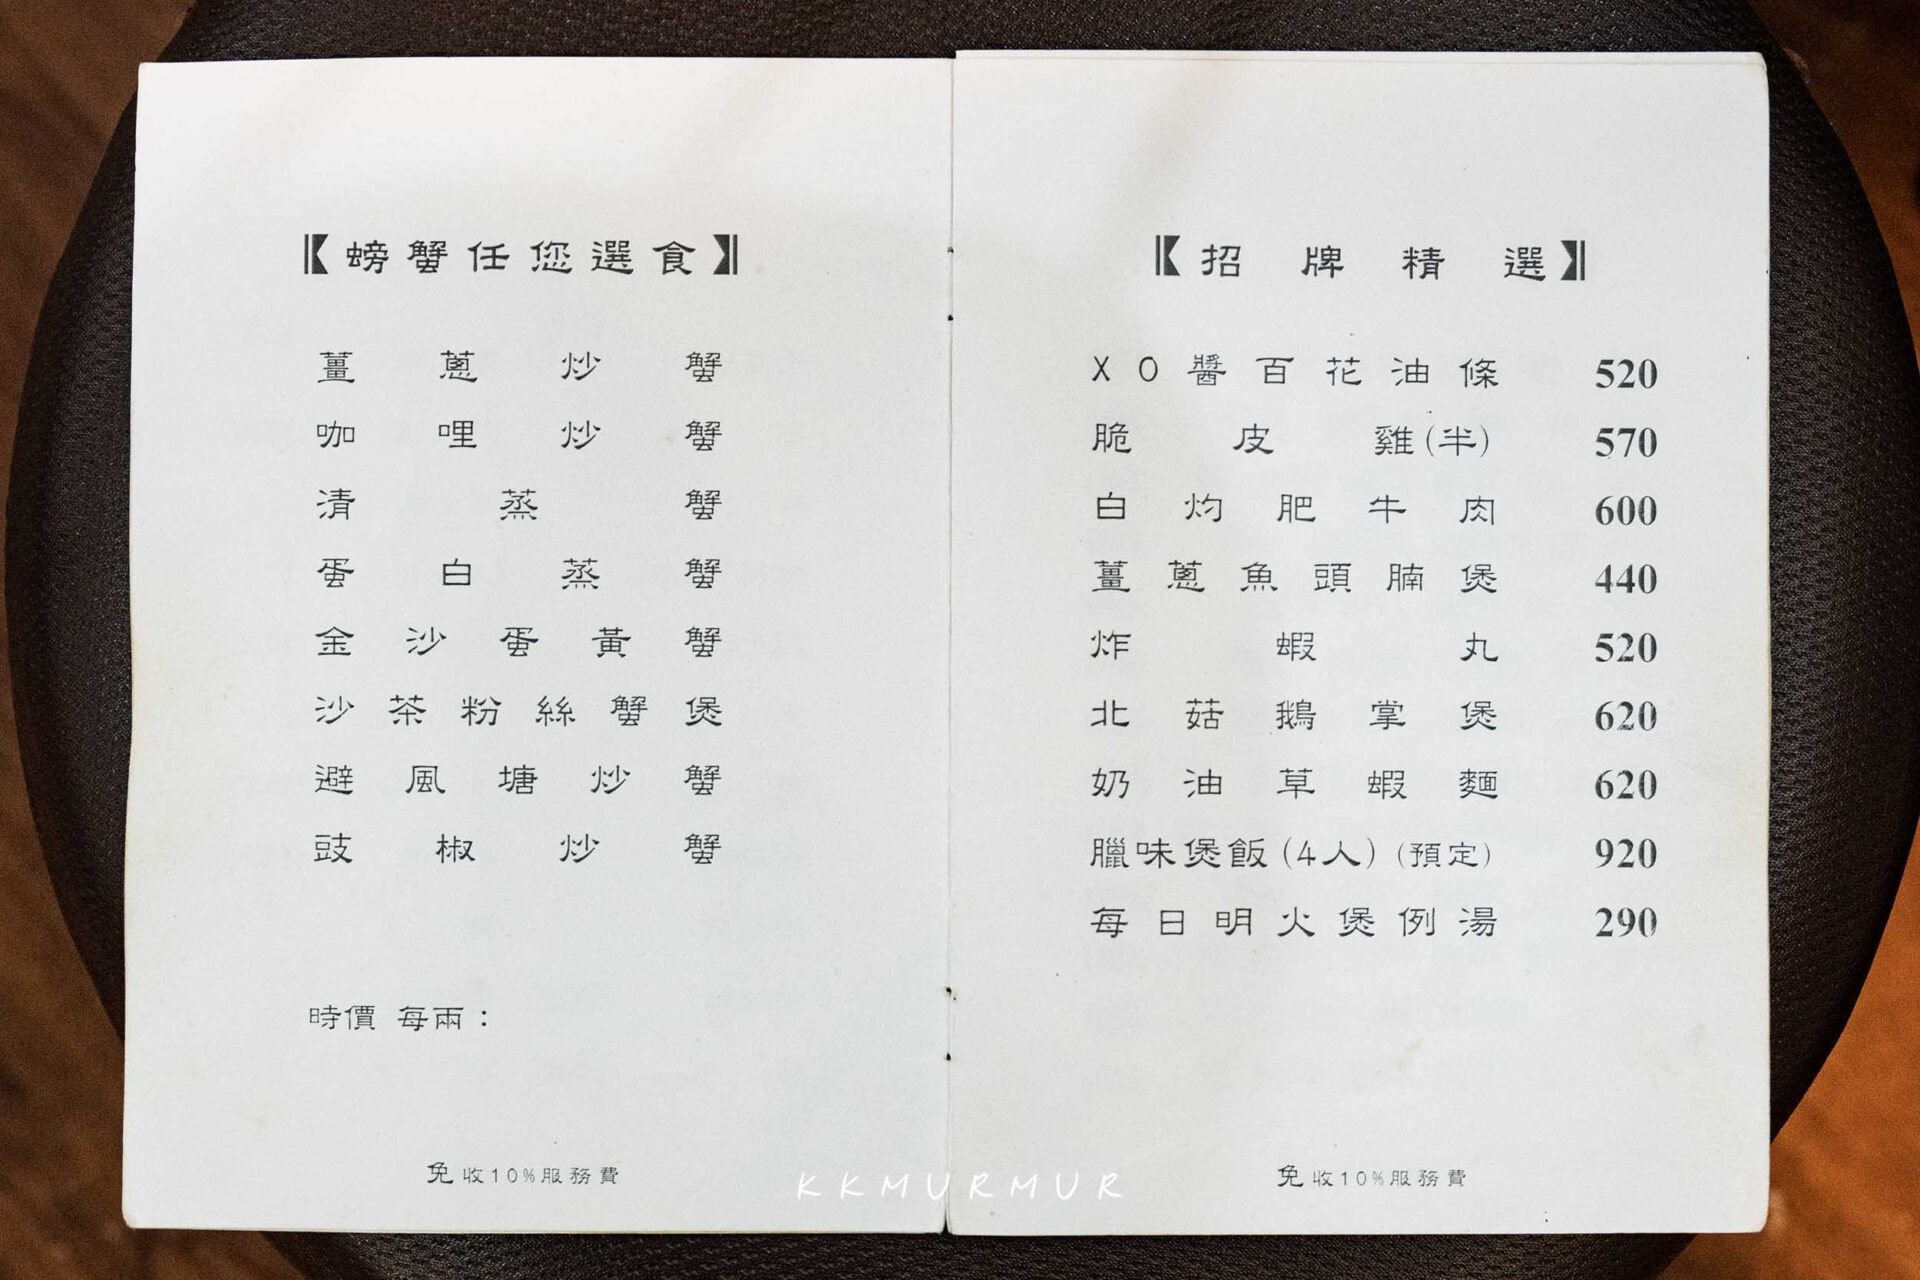 【螃蟹任您選食】
薑蔥炒蟹
咖哩炒蟹
清蒸蟹
蛋白蒸蟹
金沙蛋黃蟹
沙茶粉絲蟹煲
避風塘炒蟹
豉椒炒蟹
時價 每兩：
免收10%服務費
【招牌精選】
XO醬百花油條 520
脆皮雞(半) 570
白灼肥牛肉 600
薑蔥魚頭腩煲 440
炸蝦丸 520
北菇鵝掌煲 620
奶油草蝦麵 620
臘味煲飯(4人)(預定) 920
每日明火煲例湯 290
免收10%服務費
KKMURMUR